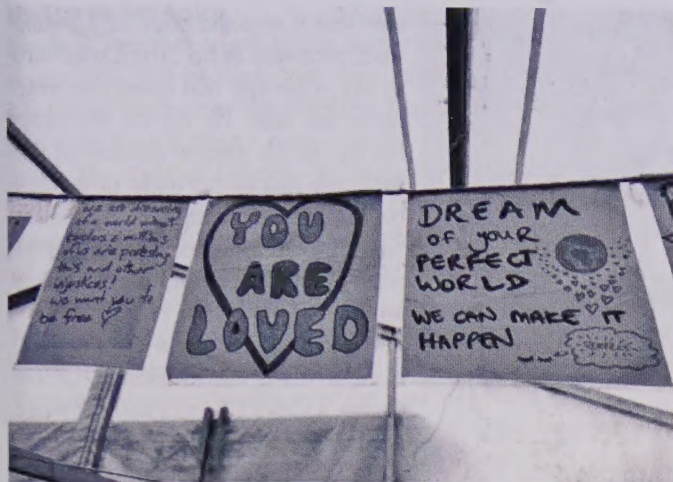 we are dreaming
of a world without
borders & millions
of us are protesting
this and other
injustices!
we want you to
be free
YOU
ARE
LOVED
DREAM
OF YOUR
PERFECT
WORLD
WE CAN MAKE IT
HAPPEN